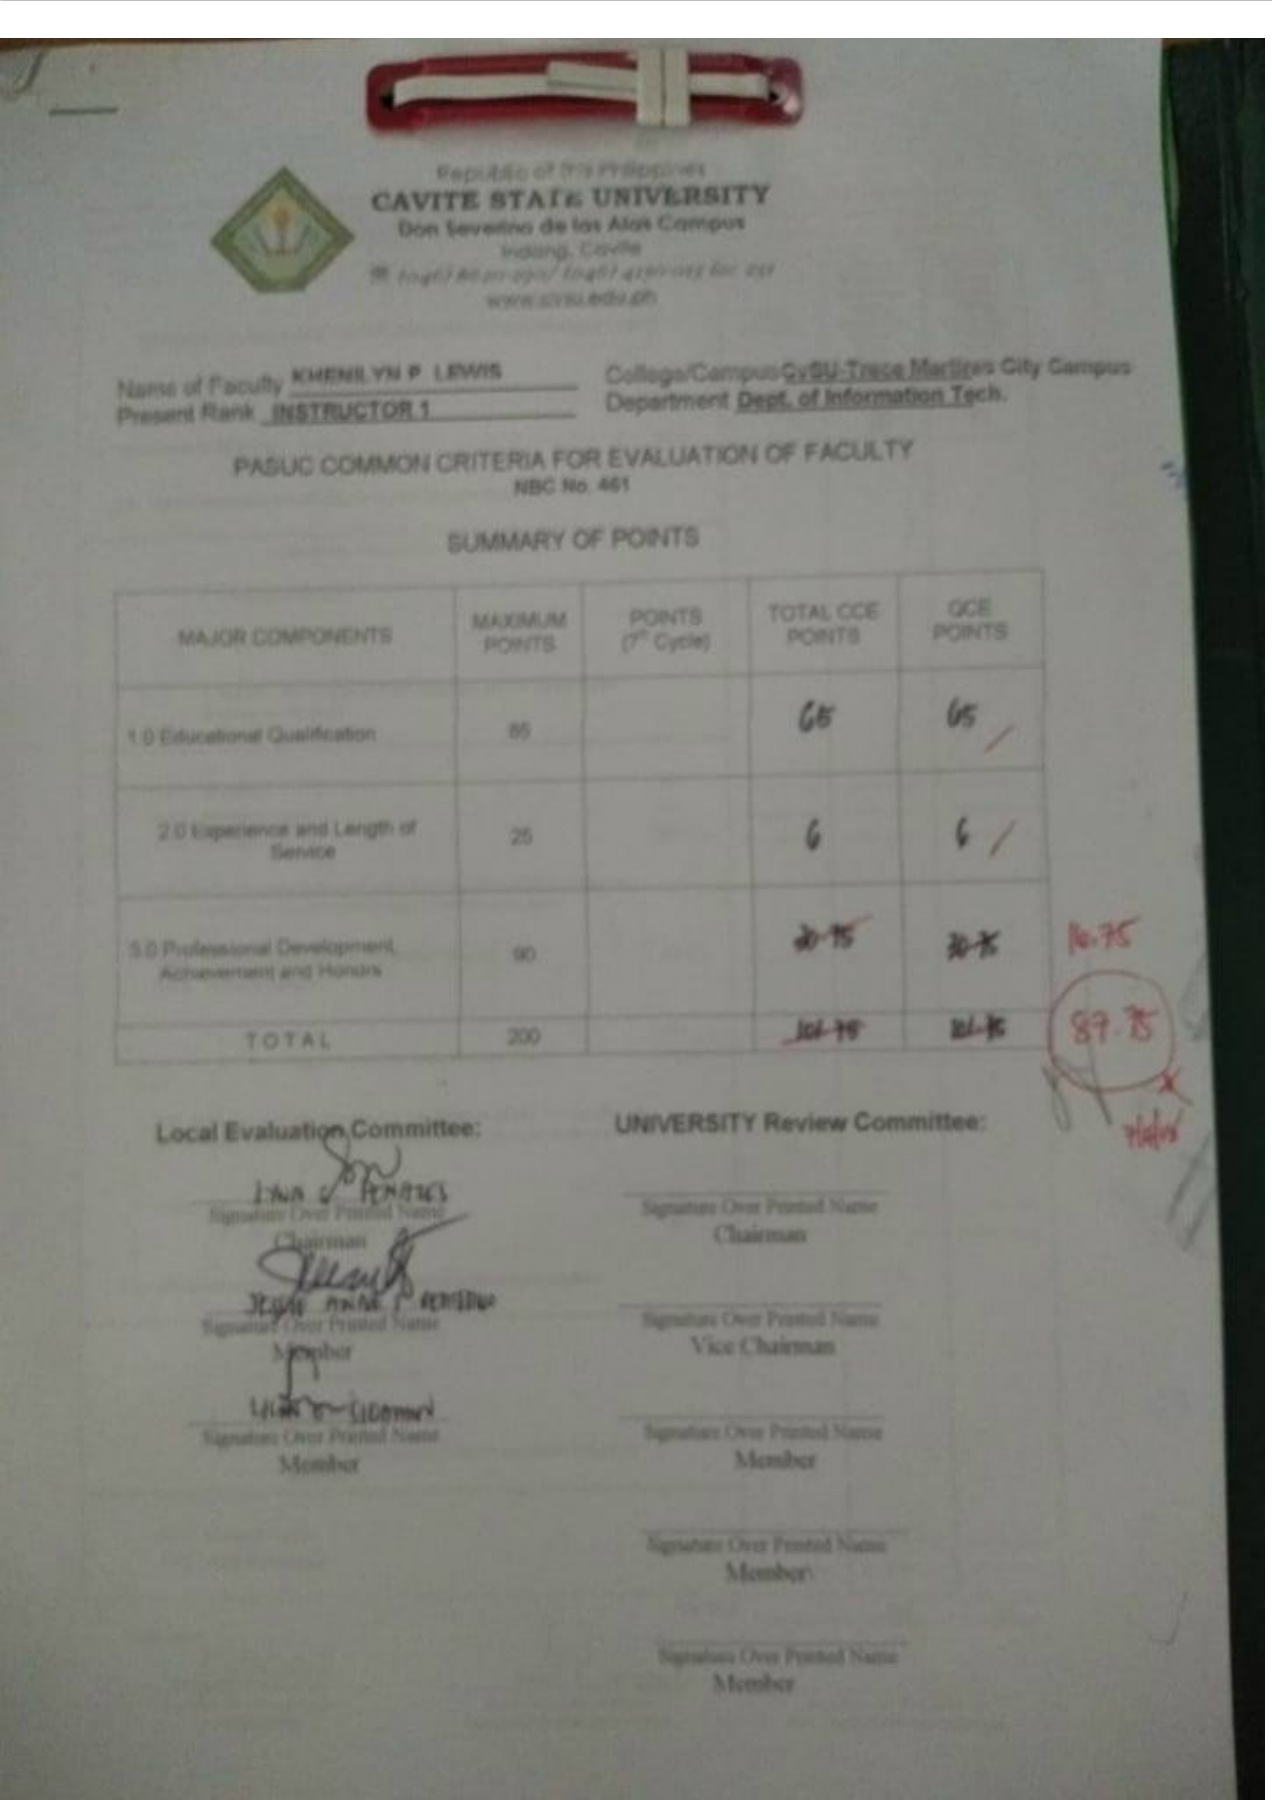 Republic of the Philippines
CAVITE STATE UNIVERSITY
Don Severino de las Alas Campus
Indang, Cavite
www.cvsu.edu.ph
Name of Faculty KHENILYN P. LEWIS
College/Campus CvSU-Trece Martires City Campus
Present Rank INSTRUCTOR 1
Department Dept. of Information Tech.
PASUC COMMON CRITERIA FOR EVALUATION OF FACULTY
NBC No. 461
SUMMARY OF POINTS
MAJOR COMPONENTS MAXIMUM POINTS POINTS (7th Cycle) TOTAL CCE POINTS QCE POINTS
1.0 Educational Qualification 85 65 65
2.0 Experience and Length of Service 25 6 6
3.0 Professional Development, Achievement and Honors 90 30.75 30.75 16.75
TOTAL 200 101.75 101.75 87.75
Local Evaluation Committee:
UNIVERSITY Review Committee:
Signature Over Printed Name
Chairman
Signature Over Printed Name
Member
Signature Over Printed Name
Member
Signature Over Printed Name
Chairman
Signature Over Printed Name
Vice Chairman
Signature Over Printed Name
Member
Signature Over Printed Name
Member\
Signature Over Printed Name
Member